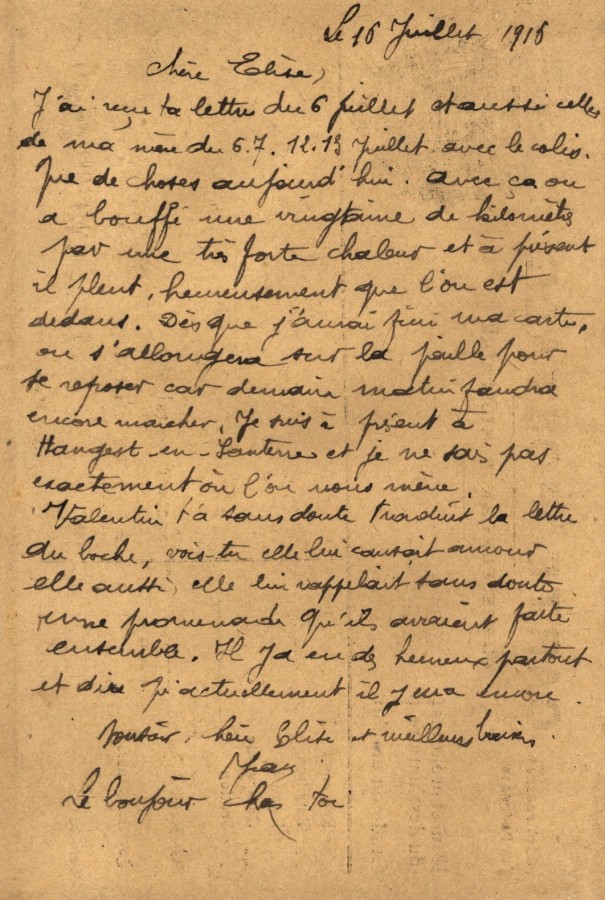 Le 16 Juillet 1916
Chère Elise,
J'ai reçu ta lettre du 6 juillet et aussi celles
de ma mère du 6.7.12.13 Juillet avec le colis.
Que de choses aujourd'hui. Avec ça on
a bouffé une vingtaine de kilomètres
par une très forte chaleur et à présent
il pleut, heureusement que l'on est
dedans. Dès que j'aurai fini ma carte,
on s'allongera sur la paille pour
se reposer car demain matin faudra
encore marcher. Je suis à présent à
Hangest-en-Santerre et je ne sais pas
exactement où l'on nous mène.
Valentin t'a sans doute traduit la lettre
du boche, vois-tu elle lui causait amour
elle aussi, elle lui rappelait sans doute
une promenade qu'ils avaient faite
ensemble. Il y a en des heureux partout
et dire qu'actuellement il y en a encore.
Bonsoir, chère Elise et meilleurs baisers.
Le bonjour chez toi